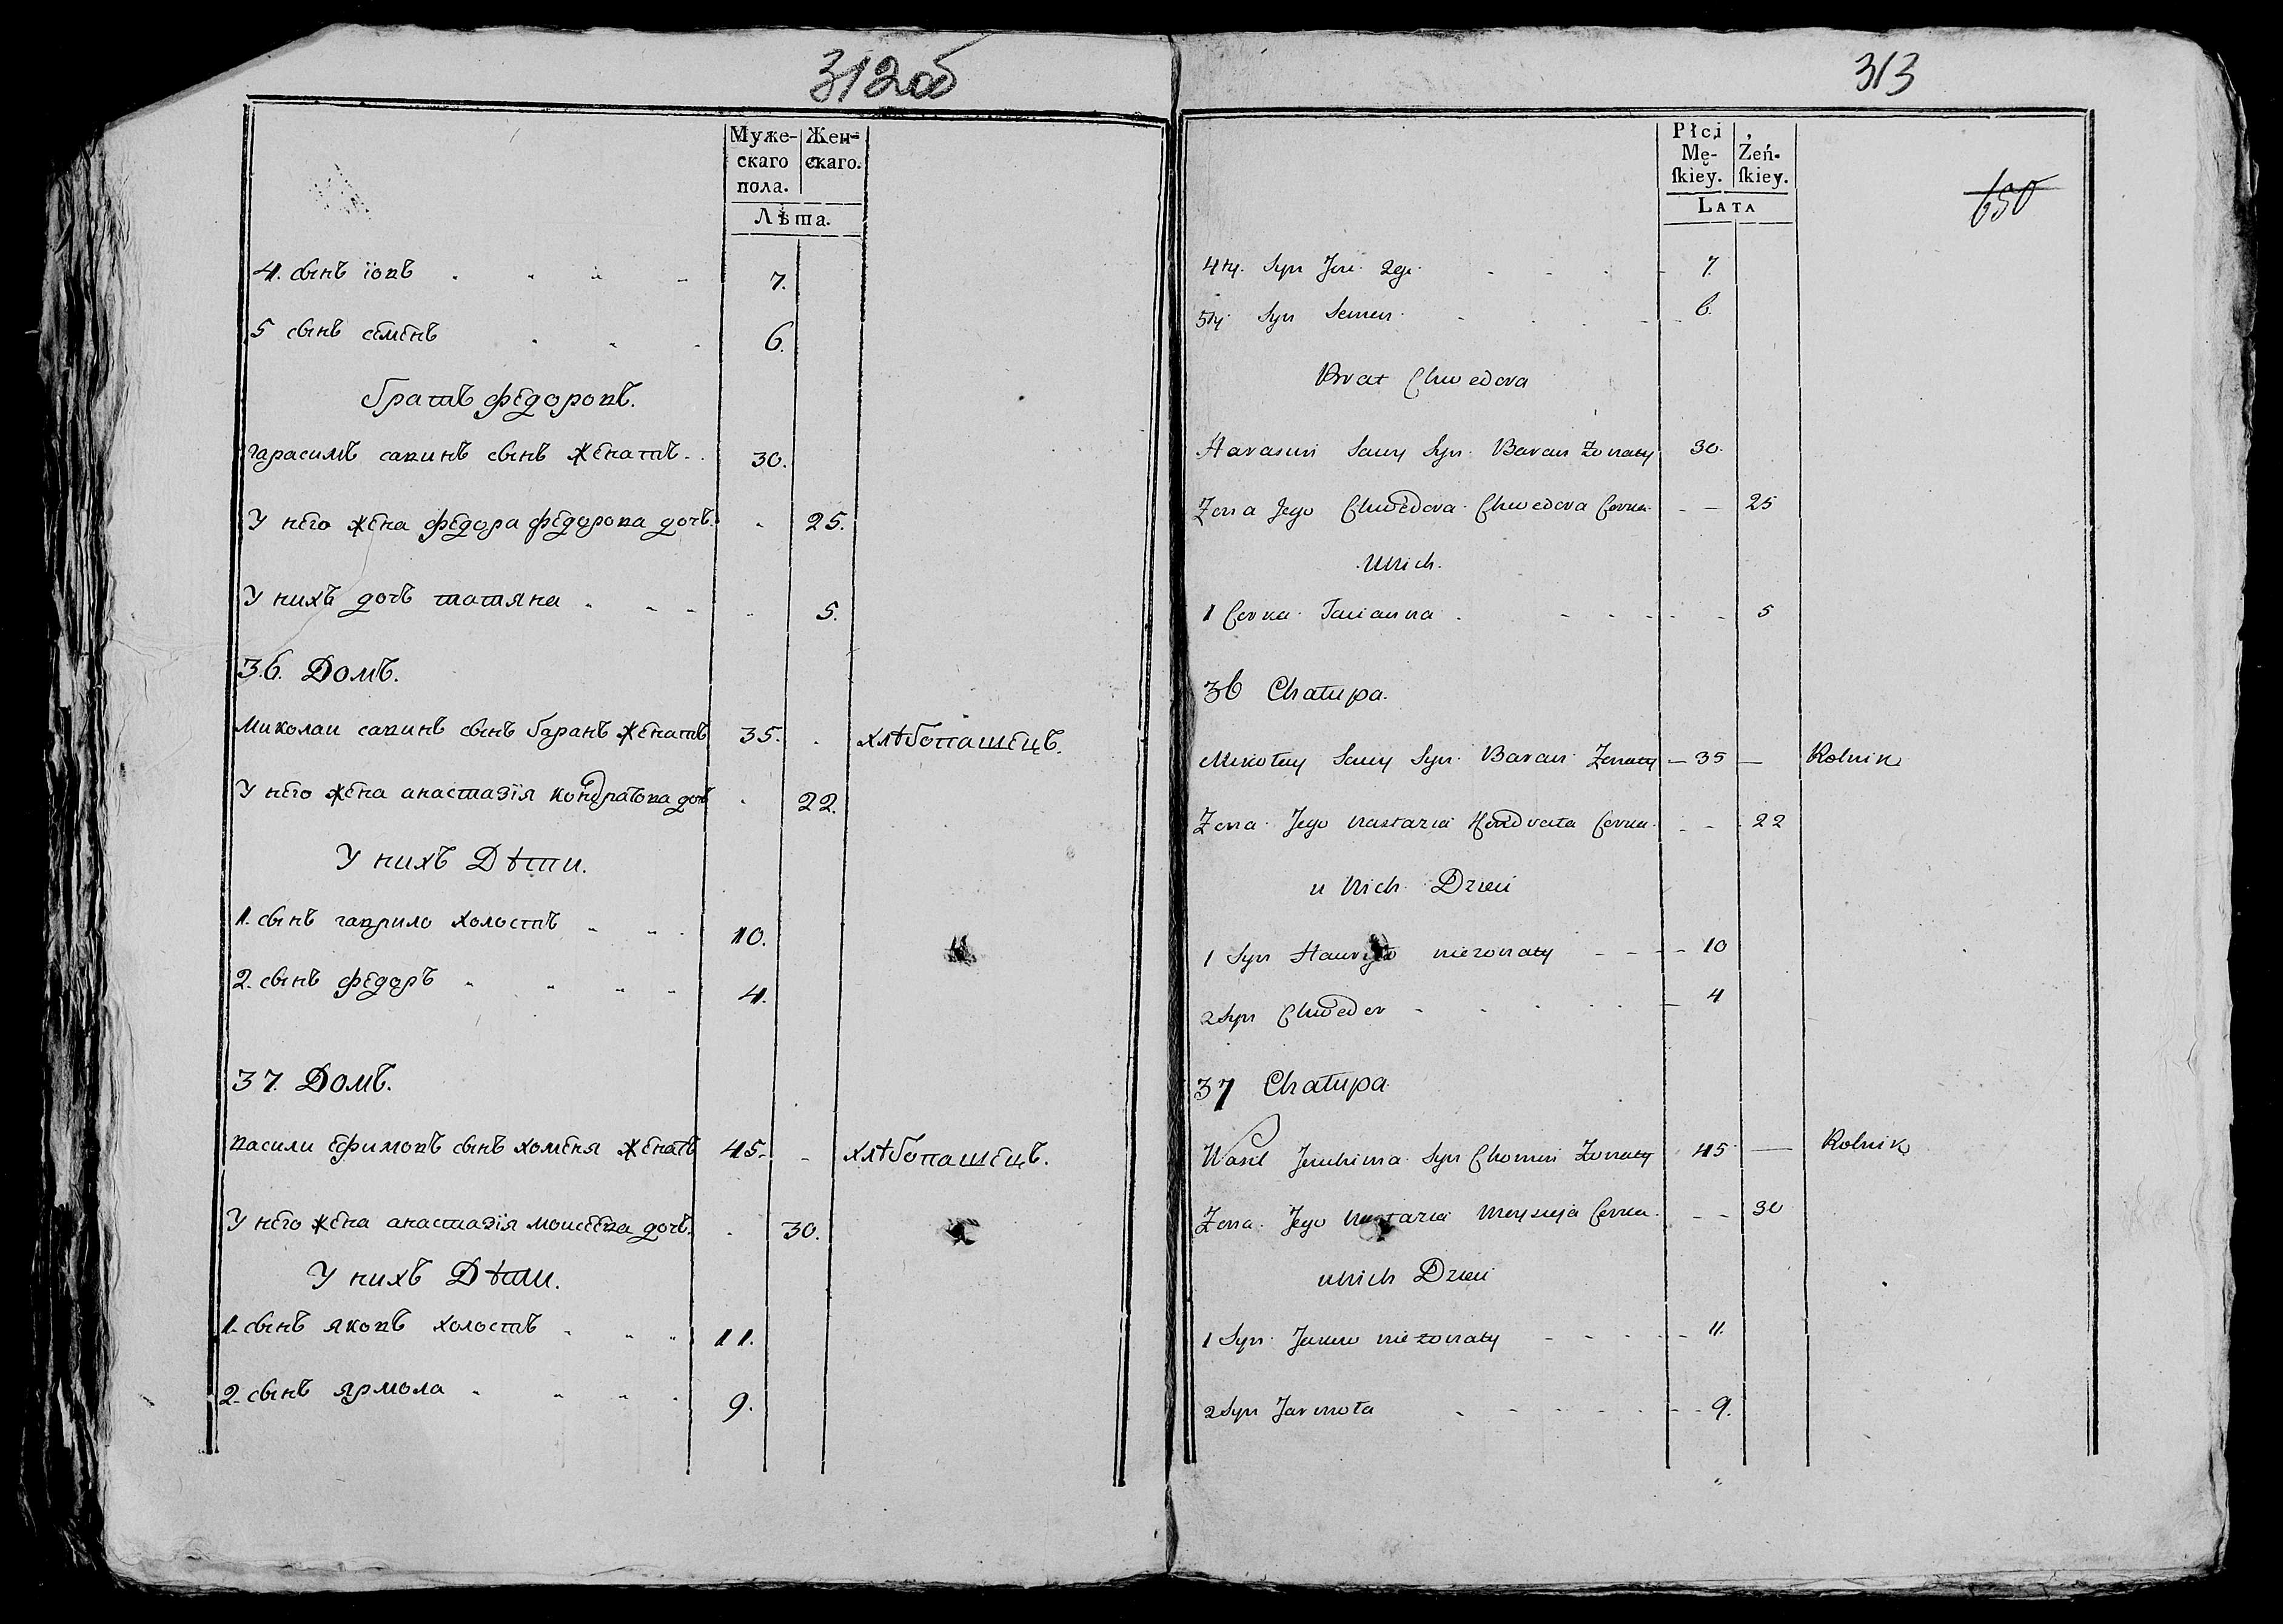 312об
Муже-
скаго
пола.
Жен-
скаго.
Лѣта.
4. сынъ їовъ 7.
5 сынъ семенъ 6.
братъ федоровъ.
гарасимъ савинъ сынъ женатъ 30.
У него жена федора федорова дочь 25.
У нихъ дочь татяна 5.
36. Домъ.
миколаи савинъ сынъ баранъ женатъ 35. хлѣбопашецъ.
У него жена анастазїя кондратова дочь 22.
У нихъ Дѣти.
1. сынъ гаврило холостъ 10.
2. сынъ федоръ 4.
37. Домъ.
васили ефимовъ сынъ хоменя женатъ 45. хлѣбопашецъ.
У него жена анастазїя моисеева дочь 30.
У нихъ Дѣти.
1. сынъ яковъ холостъ 11.
2. сынъ ярмола 9.
313
650
Płci
Mę-
ſkiey.
Żeń-
ſkiey.
LATA
4ty. Syn 2gi 7.
5ty Syn Semen 6.
Brat Chwedora
Harasim Sawy Syn Baran Zonaty 30.
Zona Jego Chwedora Chwedora Corka 25
U Nich
1 Corka Tacianna 5
36 Chałupa.
Mikołay Sawy Syn Baran Zonaty 35 Rolnik
Zona Jego Nastazia Kondrata Corka 22
u Nich Dzieci
1 Syn Hawryło niezonaty 10
2 Syn Chwedor 4
37 Chałupa
Wasil Jeuchima Syn Chomin Zonaty 45 Rolnik
Zona Jego Nastazia Moyzieja Corka 30
u Nich Dzieci
1 Syn Jakow niezonaty 11.
2 Syn Jarmoła 9.